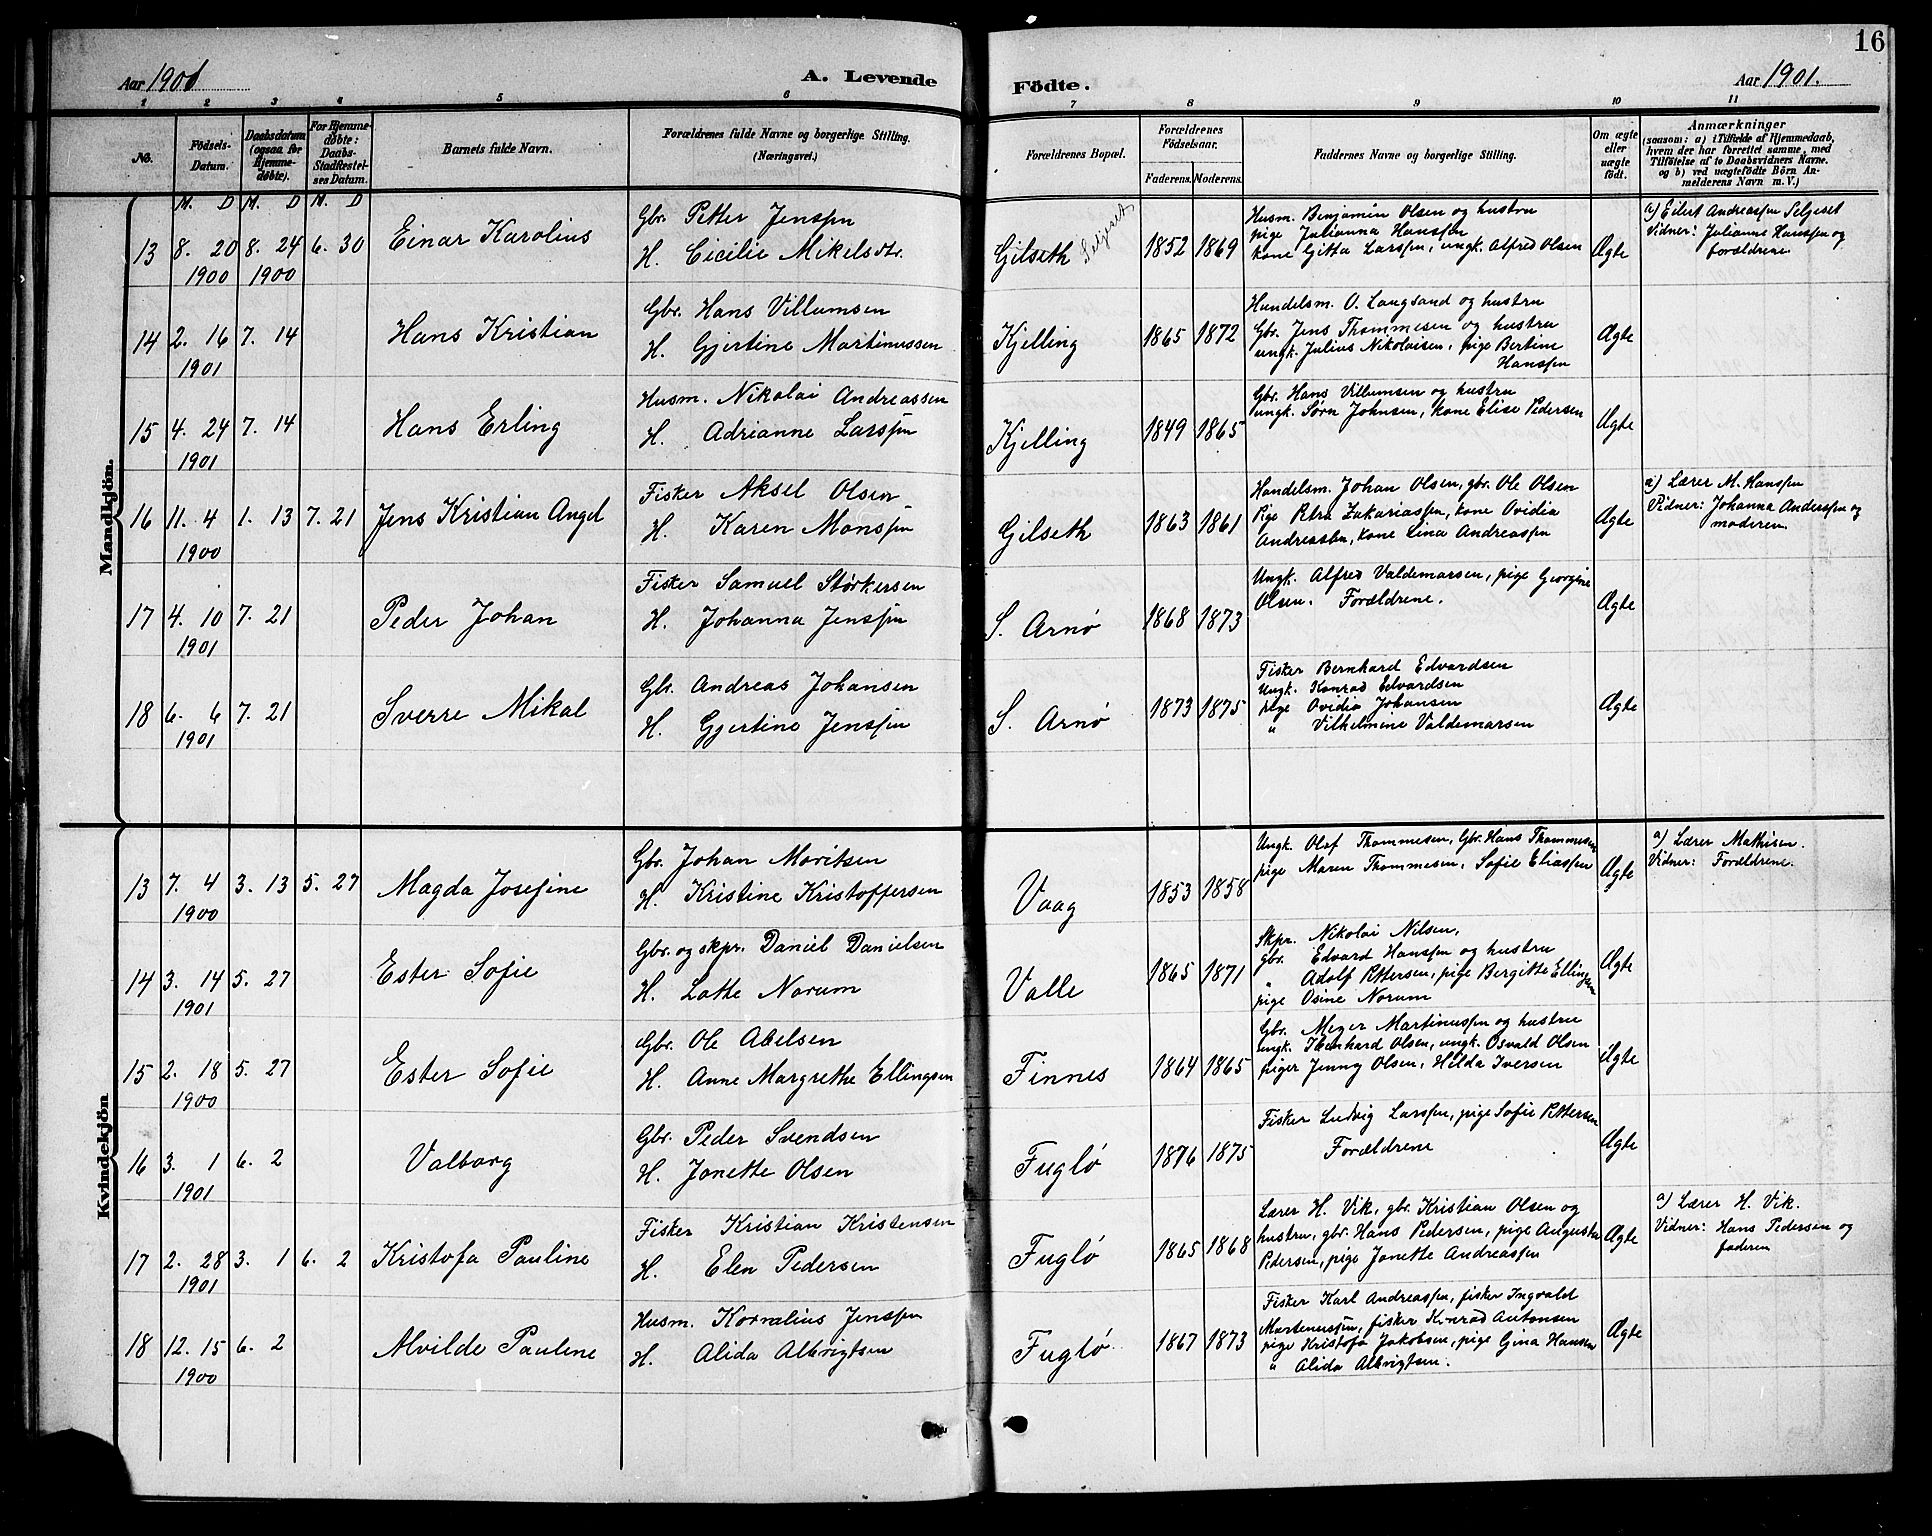 16
Aar 1901
A. Levende
Fødte.
Aar 1901.
1 2 3 4 5 6 7 8 9 10 11
No.
Fødsels-
Datum.
Daabsdatum
(ogsaa for
Hjemme-
døbte).
For Hjemme-
døbte:
Daabs-
Stadfæstel-
ses Datum.
Barnets fulde Navn.
Forældrenes fulde Navne og borgerlige Stilling.
(Næringsvei.)
Forældrenes Bopæl.
Forældrenes
Fødselsaar.
Faderens. Moderens.
Faddernes Navne og borgerlige Stilling.
Om ægte
eller
uægte
født.
Anmærkninger
(saasom: a) i Tilfælde af Hjemmedaab,
hvem der har forrettet samme, med
Tilføielse af to Daabsvidners Navne.
og b) ved uægtefødte Børn An-
melderens Navn m. V.)
M. D M. D M. D
Mandkjøn.
13 8. 20 1900 8. 24 1900 6. 30
Einar Karolius
Gbr. Petter Jenssen
H. Cicilie Mikelsdtr.
Gilseth
1852 1869
Husm. Benjamin Olsen og hustru
pige Julianna Hanssen
kone Gitta Larssen, ungk. Alfred Olsen
Ægte
a) Eilert Andreassen Seljeset
Vidner: Julianne Hanssen og
forældrene.
14 2. 16 1901 7. 14
Hans Kristian
Gbr. Hans Villumsen
H. Gjertine Martinussen
Kjelling
1865 1872
Handelsm. O. Langsand og hustru
Gbr. Jens Thommesen og hustru
ungk. Julius Nikolaisen, pige Bertine
Hanssen
Ægte
15 4. 24 1901 7. 14
Hans Erling
Husm. Nikolai Andreassen
H. Adrianne Larssen
Kjelling
1849 1865
Gbr. Hans Villumsen og hustru
ungk. Sørn Johnsen, kone Elise Pedersen
Ægte
16 11. 4 1900 1. 13 7. 21
Jens Kristian Angel
Fisker Aksel Olsen
H. Karen Monssen
Gilseth
1863 1861
Handelsm. Johan Olsen, gbr. Ole Olsen
Pige Petra Zakariassen, kone Ovidia
Andreassen, kone Lina Andreassen
Ægte
a) Lærer M. Hanssen
Vidner: Johanna Anderssen og
moderen.
17 4. 10 1901 7. 21
Peder Johan
Fisker Samuel Størkersen
H. Johanna Jenssen
S. Arnø
1868 1873
Ungk. Alfred Valdemarsen, pige Georgine
Olsen. Forældrene.
Ægte
18 6. 6 1901 7. 21
Sverre Mikal
Gbr. Andreas Johansen
H. Gjertine Jenssen
S. Arnø
1873 1875
Fisker Bernhard Edvardsen
Ungk. Konrad Edvardsen
pige Ovidia Johansen
" Vilhelmine Valdemarsen
Ægte
Kvindekjön
13 7. 4 1900 3. 13 5. 27
Magda Josefine
Gbr. Johan Moritsen
H. Kristine Kristoffersen
Vaag
1853 1858
Ungk. Olaf Thommesen, Gbr. Hans Thommesen
pige Maren Thommesen, Sofie Eliassen
Ægte
a) Lærer Mathisen.
Vidner: Forældrene.
14 3. 14 1901 5. 27
Ester Sofie
Gbr. og skpr. Daniel Danielsen
H. Lotte Norum
Valle
1865 1871
Skpr. Nikolai Nilsen,
gbr. Edvard Hanssen og hustru
" Adolf Pettersen, pige Bergitte Ellingsen
pige Osine Norum
Ægte
15 2. 18 1900 5. 27
Ester Sofie
Gbr. Ole Abelsen
H. Anne Margrethe Ellingsen
Finnes
1864 1865
Gbr. Meyer Martinussen og hustru
ungk. Olsen, ungk. Osvald Olsen
piger Jenny Olsen, Hilda Iversen
Ægte
16 3. 1 1901 6. 2
Valborg
Gbr. Peder Svendsen
H. Jonette Olsen
Fuglø
1876 1875
Fisker Ludvig Larssen, pige Sofie Pettersen
Forældrene
Ægte
17 2. 28 1901 3. 1 6. 2
Kristofa Pauline
Fisker Kristian Kristensen
H. Elen Pedersen
Fuglø
1865 1868
Lærer H. Vik, gbr. Kristian Olsen og
hustru, gbr. Hans Pedersen, pige Augusta
Pedersen, pige Jonette Andreassen
Ægte
a) Lærer H. Vik.
Vidner: Hans Pedersen og
faderen
18 12. 15 1900 6. 2
Alvilde Pauline
Husm. Kornelius Jenssen
H. Alida Albrigtsen
Fuglø
1867 1873
Fisker Karl Andreassen, fisker Ingvald
Martenussen, fisker Konrad Antonsen
pige Kristofa Jakobsen, pige Gina Hansen
" Alida Albrigtsen.
Ægte